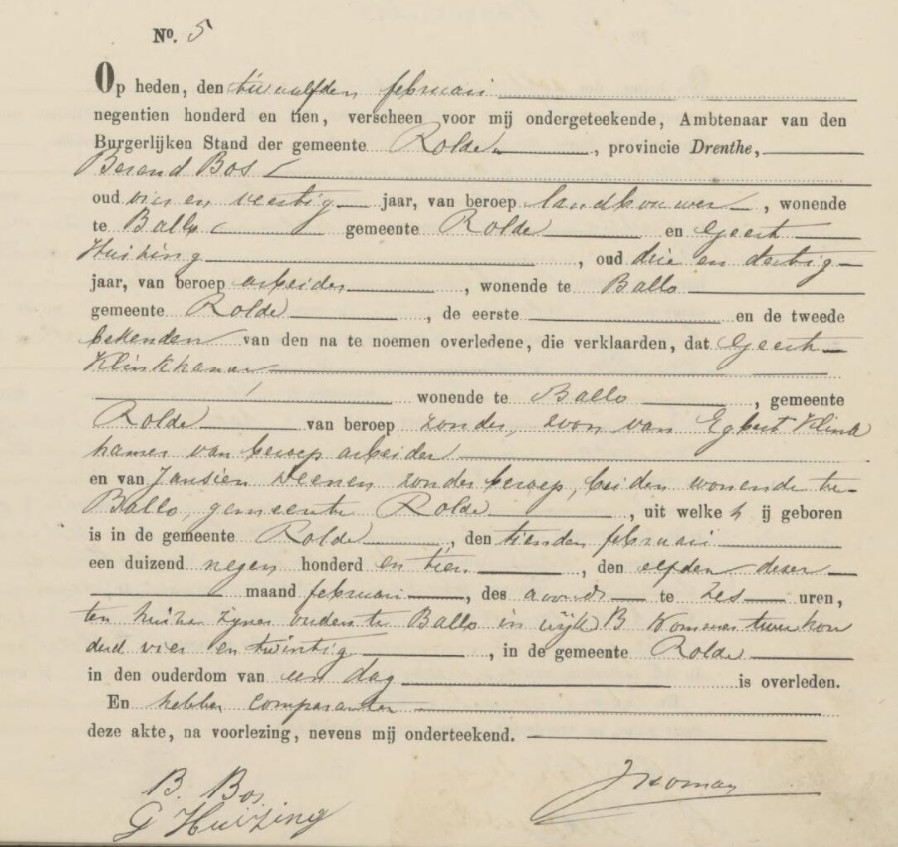 No. 5
Op heden, den twaalfden februari
negentien honderd en tien, verscheen voor mij ondergeteekende, Ambtenaar van den
Burgerlijken Stand der gemeente Rolde, provincie Drenthe,
Berend Bos
oud vier en veertig jaar, van beroep landbouwer, wonende
te Ballo gemeente Rolde en Geert
Huizing, oud drie en dertig
jaar, van beroep arbeider, wonende te Ballo
gemeente Rolde, de eerste en de tweede
bekenden van den na te noemen overledene, die verklaarden, dat Geert
Klinkhamer
wonende te Ballo, gemeente
Rolde van beroep zonder, zoon van Egbert Klink
hamer van beroep arbeider
en van Jansien Veenen zonder beroep, beiden wonende te
Ballo, gemeente Rolde, uit welke hij geboren
is in de gemeente Rolde, den tienden februari
een duizend negen honderd en tien, den elfden dezer
maand februari, des avonds te zes uren,
ten huize zijner ouders te Ballo in wijk B Nommer twee hon
derd vier en twintig, in de gemeente Rolde
in den ouderdom van een dag is overleden.
En hebben comparanten
deze akte, na voorlezing, nevens mij onderteekend.
B. Bos
G Huizing